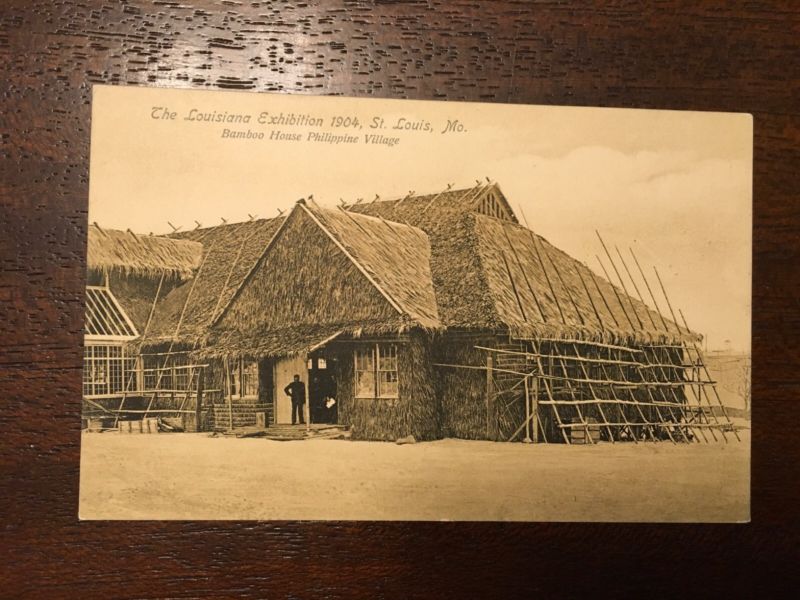 The Louisiana Exhibition 1904, St. Louis, Mo.
Bamboo House Philippine Village